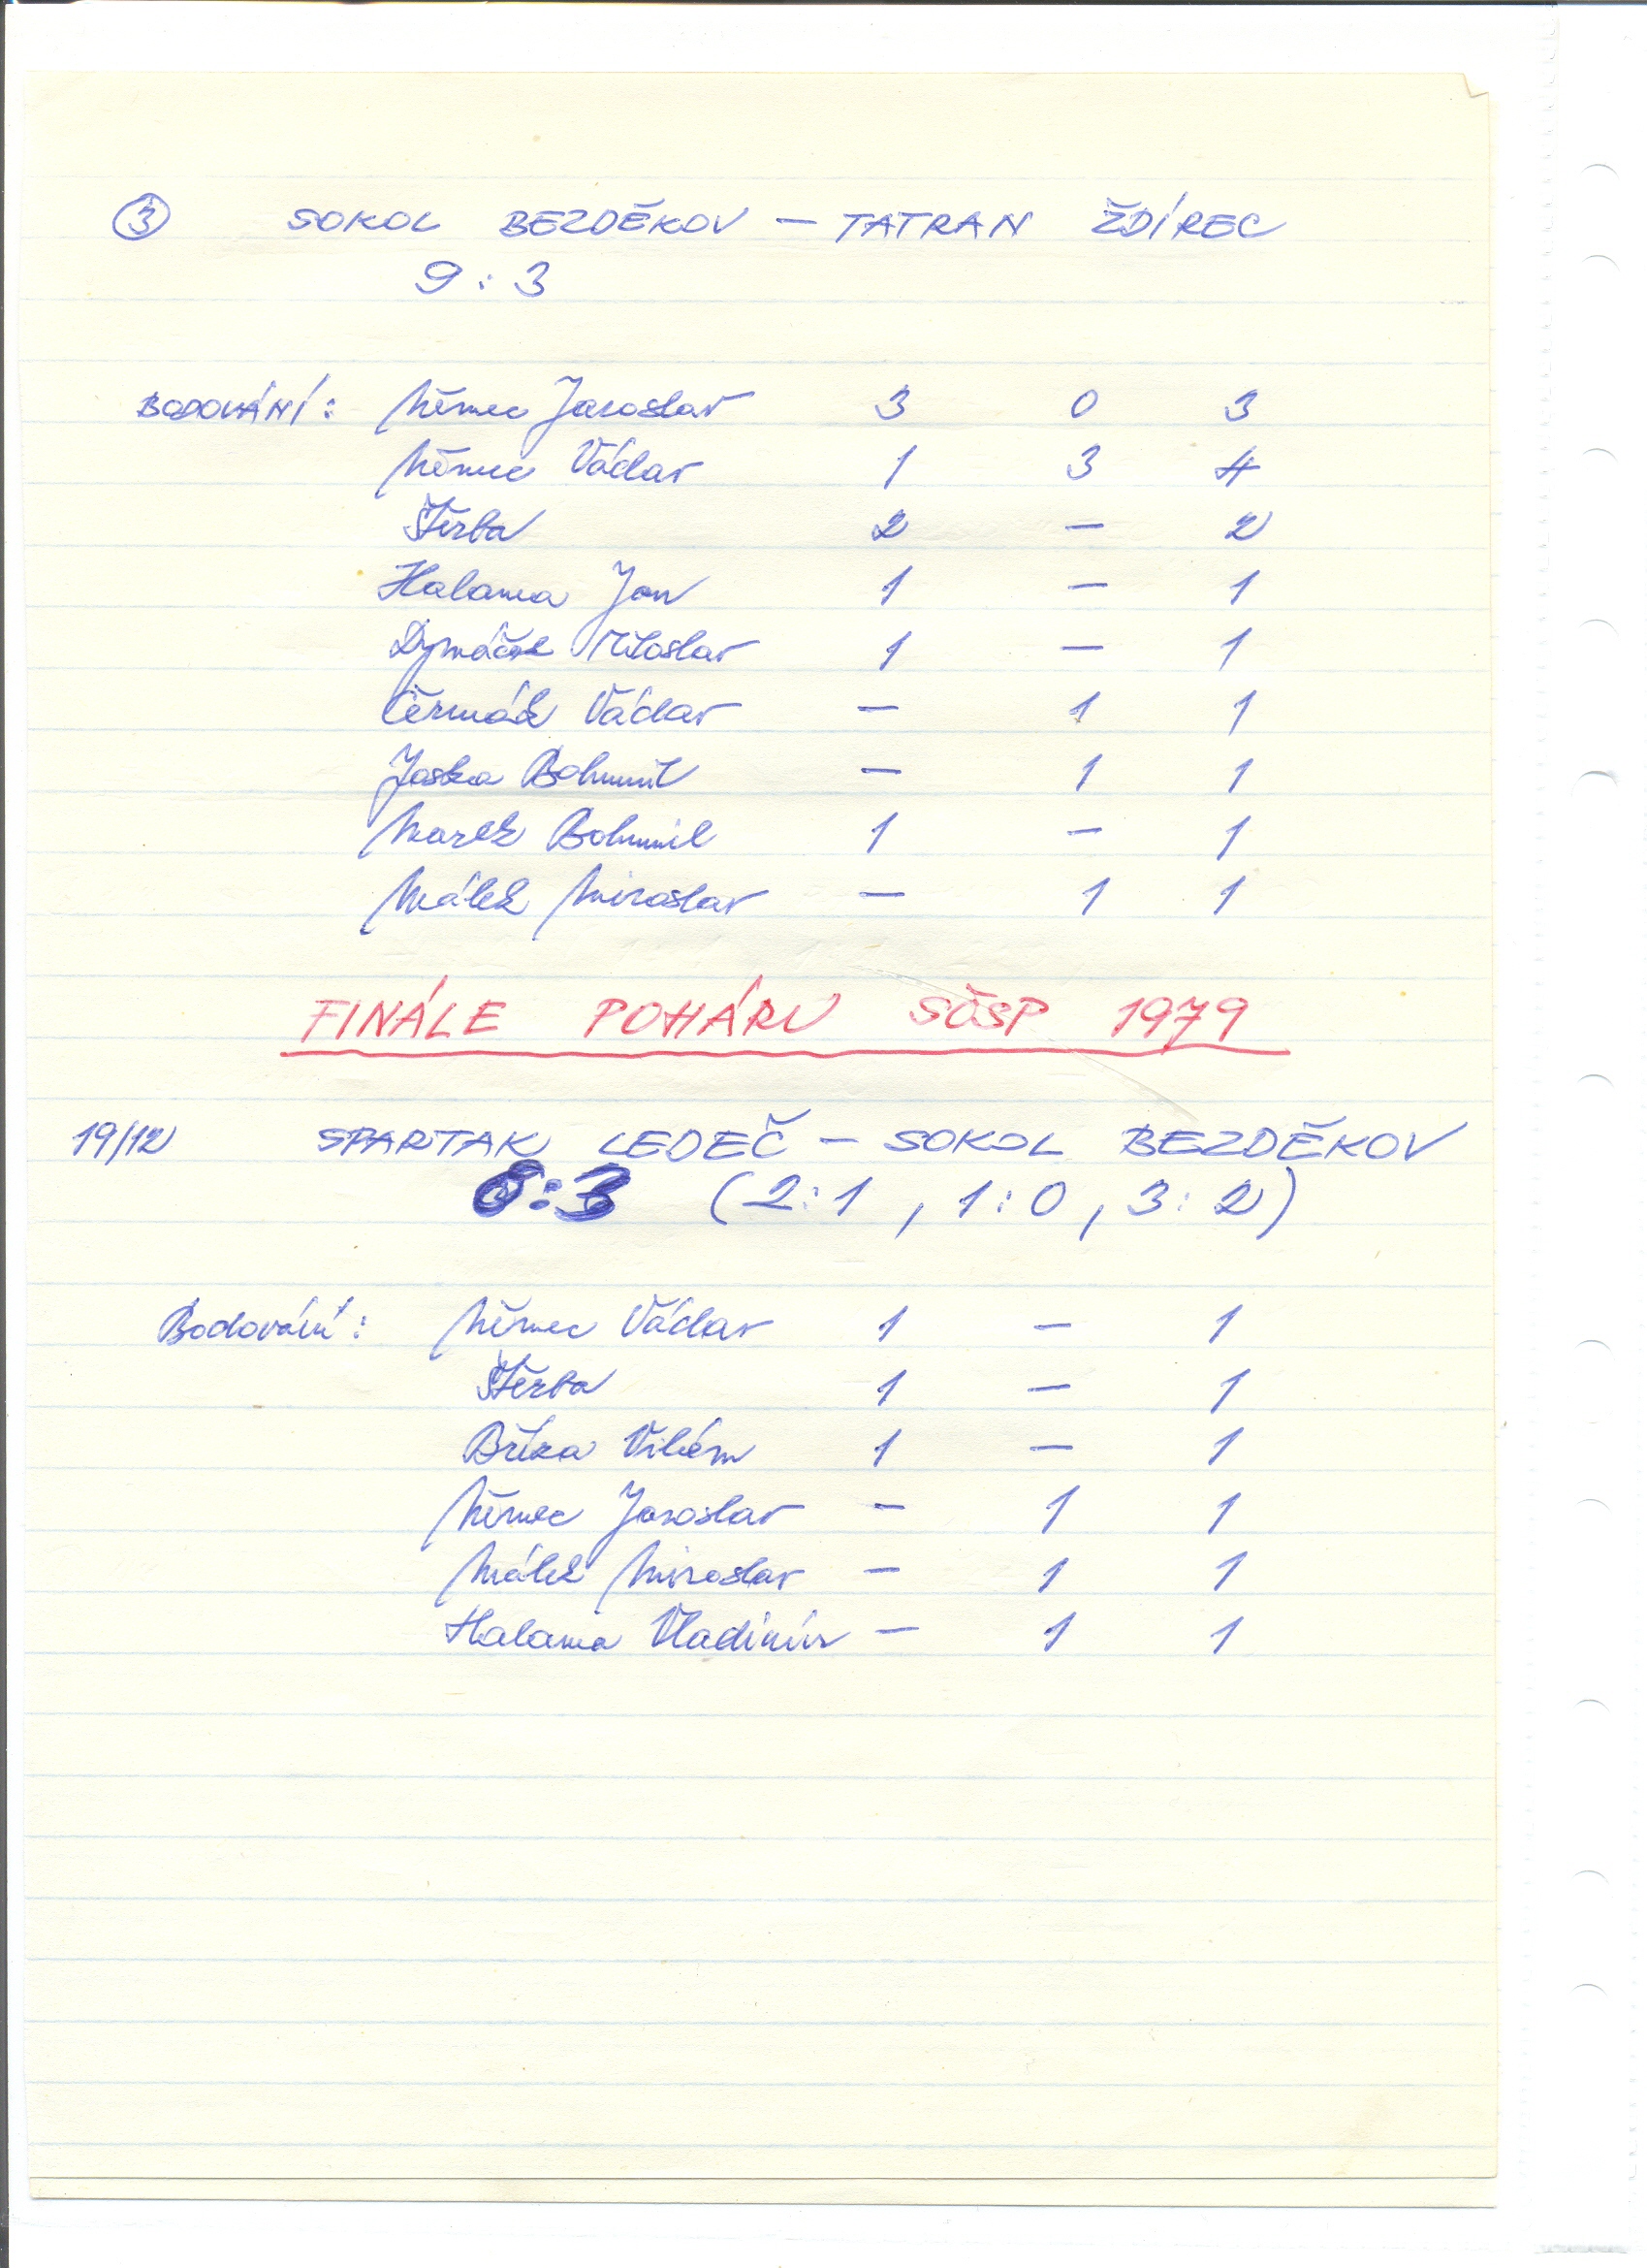 ③ SOKOL BEZDĚKOV — TATRAN ŽDÍREC
9 : 3
BODOVÁNÍ: Němec Jaroslav 3 0 3
Němec Václav 1 3 4
Štěrba 2 — 2
Halama Jan 1 — 1
Dymáček Miloslav 1 — 1
Čermák Václav — 1 1
Jaska Bohumil — 1 1
Marek Bohumil 1 — 1
Málek Miroslav — 1 1
FINÁLE POHÁRU SČSP 1979
19/12 SPARTAK LEDEČ — SOKOL BEZDĚKOV
6:3 (2:1, 1:0, 3:2)
Bodování: Němec Václav 1 — 1
Štěrba 1 — 1
Bříza Vilém 1 — 1
Němec Jaroslav — 1 1
Málek Miroslav — 1 1
Halama Vladimír — 1 1